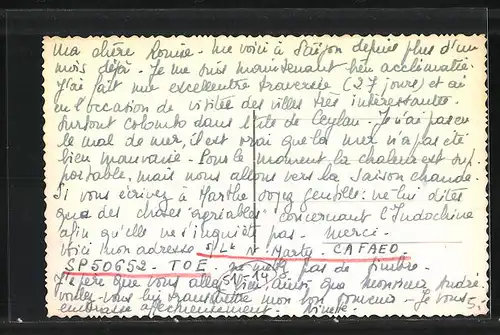 Ma chère Louise - me voici à Saïgon depuis plus d'un
mois déjà. Je me suis maintenant bien acclimatée.
J'ai fait une excellente traversée (27 jours) et ai
eu l'occasion de visiter des villes très intéressantes.
Surtout Colombo dans l'île de Ceylan. Je n'ai pas eu
le mal de mer, il est vrai que la mer n'a pas été
bien mauvaise - Pour le moment la chaleur est sup-
portable, mais nous allons vers la saison chaude.
Si vous écrivez à Marthe soyez gentille: ne lui dites
que des choses "agréables" concernant l'Indochine
afin qu'elle ne s'inquiète pas - Merci -
Voici mon adresse S/Lt Marty. CAFAEO.
SP 50652 - T.O.E. ne mettez pas de timbre.
J'espère que vous allez bien ainsi que Monsieur André.
voulez-vous lui transmettre mon bon souvenir - Je vous
embrasse affectueusement.
51/
5,-